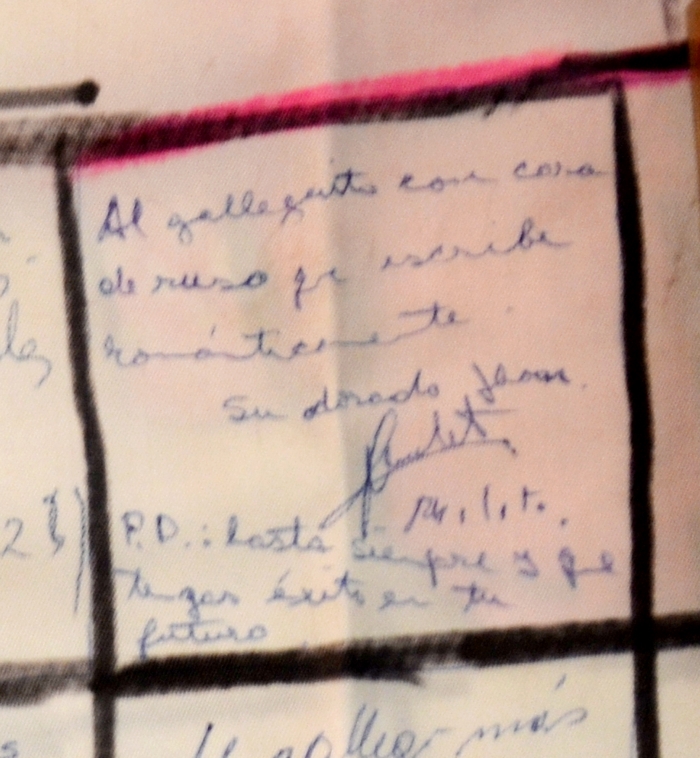 Al galleguito con cara
de ruso qe escribe
románticamente.
Su dorado Jean.
P.D.: hasta siempre y que
tengas éxito en tu
futuro
más